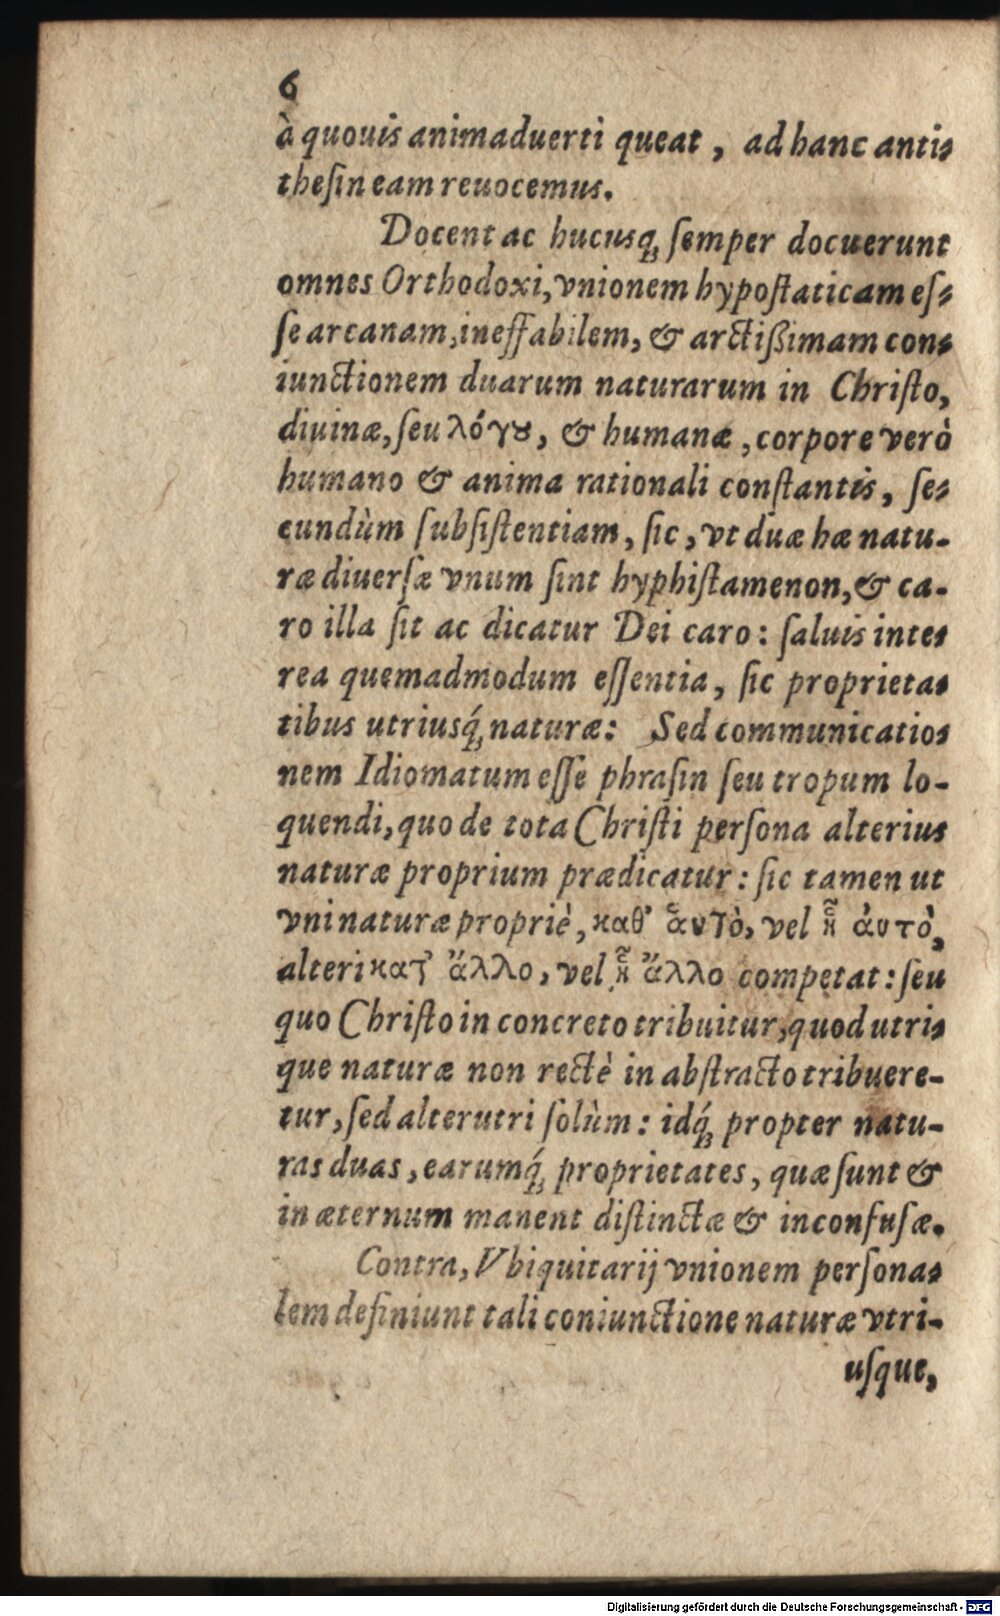 6
à quouis animaduerti queat, ad hanc anti-
theſin eam reuocemus.
Docent ac hucusq; ſemper docuerunt
omnes Orthodoxi, vnionem hypoſtaticam eſ-
ſe arcanam, ineffabilem, & arctißimam con-
iunctionem duarum naturarum in Chriſto,
diuinæ, ſeu λόγȣ, & humanæ, corpore verò
humano & anima rationali conſtantis, ſe-
cundùm ſubſiſtentiam, ſic, vt duæ hæ natu-
ræ diuerſæ vnum ſint hyphiſtamenon, & ca-
ro illa ſit ac dicatur Dei caro: ſaluis inte-
rea quemadmodum eſſentia, ſic proprieta-
tibus utriusq́; naturæ: Sed communicatio-
nem Idiomatum eſſe phraſin ſeu tropum lo-
quendi, quo de tota Chriſti perſona alterius
naturæ proprium prædicatur: ſic tamen ut
vni naturæ propriè, καθ' ἁυτὸ, vel ᾗ ἀυτὸ,
alteri κατ' ἄλλο, vel ᾗ ἄλλο competat: ſeu
quo Chriſto in concreto tribuitur, quod utri-
que naturæ non rectè in abſtracto tribuere-
tur, ſed alterutri ſolùm: idq́; propter natu-
ras duas, earumq́; proprietates, quæ ſunt &
in æternum manent diſtinctæ & inconfuſæ.
Contra, Vbiquitarij vnionem perſona-
lem definiunt tali coniunctione naturæ vtri-
uſque,
Digitalisierung gefördert durch die Deutsche Forschungsgemeinschaft - DFG